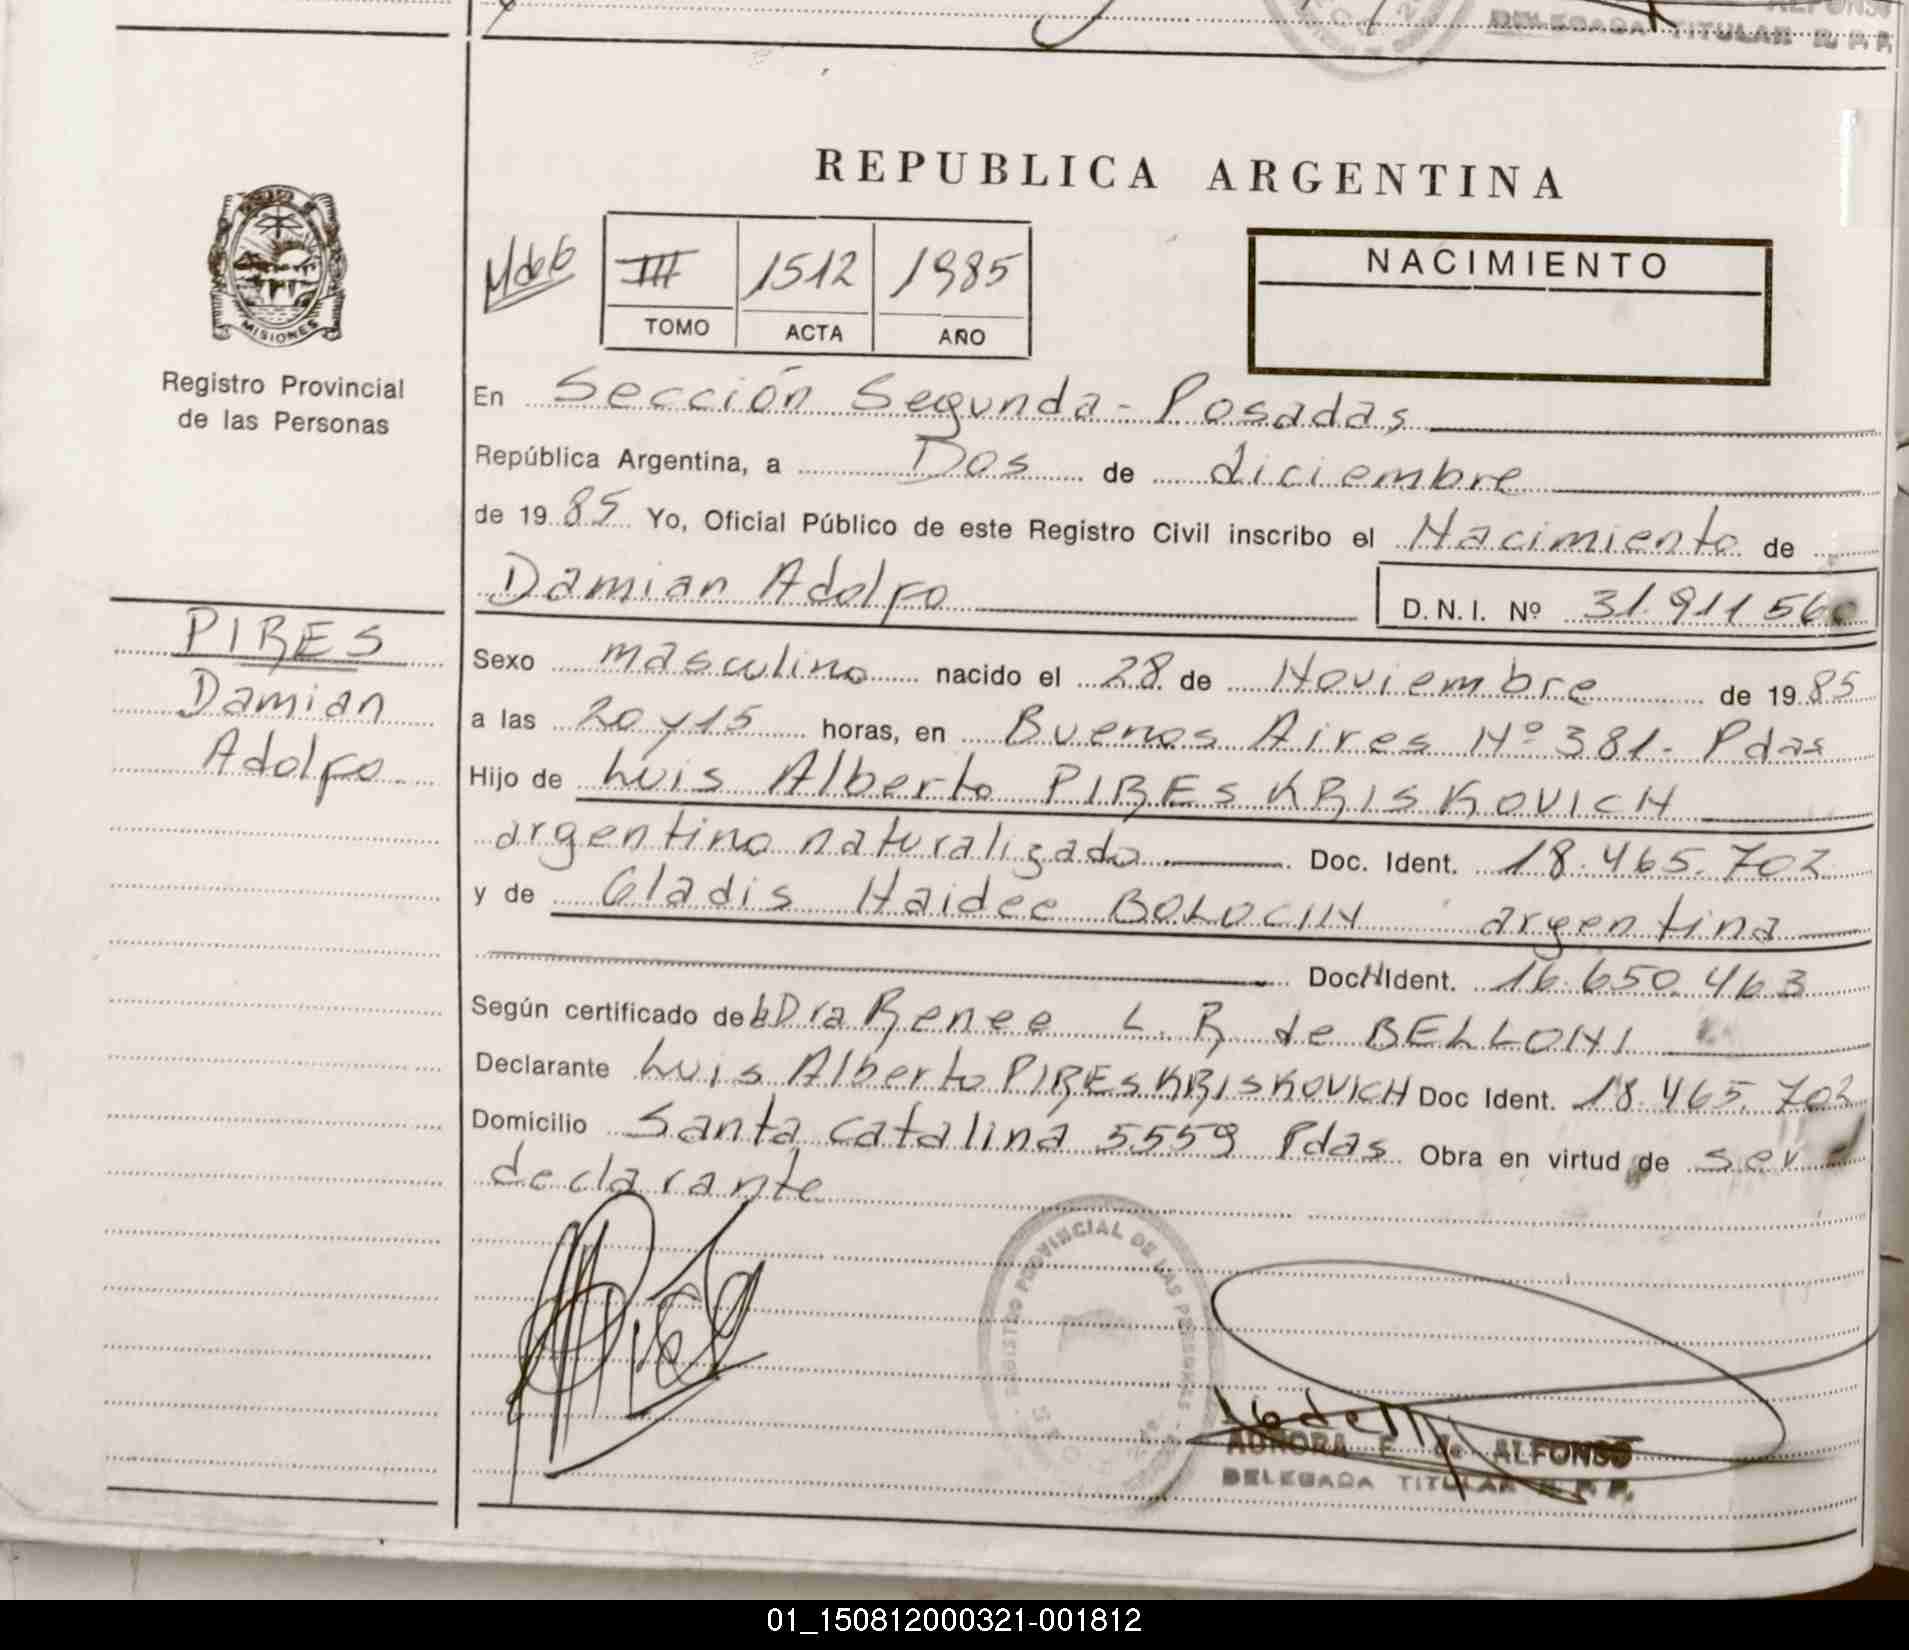 DELEGADA TITULAR R. P. P.
REPUBLICA ARGENTINA
NACIMIENTO
III 1512 1985
TOMO ACTA AÑO
MISIONES
Registro Provincial
de las Personas
En Sección Segunda - Posadas
República Argentina, a Dos de diciembre
de 1985 Yo, Oficial Público de este Registro Civil inscribo el Nacimiento de
Damian Adolfo D.N.I. Nº 31.911.560
PIRES
Damian
Adolfo
Sexo masculino nacido el 28 de Noviembre de 1985
a las 20 y 15 horas, en Buenos Aires Nº 381 - Pdas
Hijo de Luis Alberto PIRES KRISKOVICH
argentino naturalizado Doc. Ident. 18.465.702
y de Gladis Haidee BOLOCIN argentina
Doc. N Ident. 16.650.463
Según certificado de la Dra Renee L. R. de BELLONI
Declarante Luis Alberto PIRES KRISKOVICH Doc Ident. 18.465.702
Domicilio Santa Catalina 5559 Pdas Obra en virtud de ser
declarante
REGISTRO PROVINCIAL DE LAS PERSONAS
AURORA E. de ALFONSO
DELEGADA TITULAR R. P. P.
01_150812000321-001812